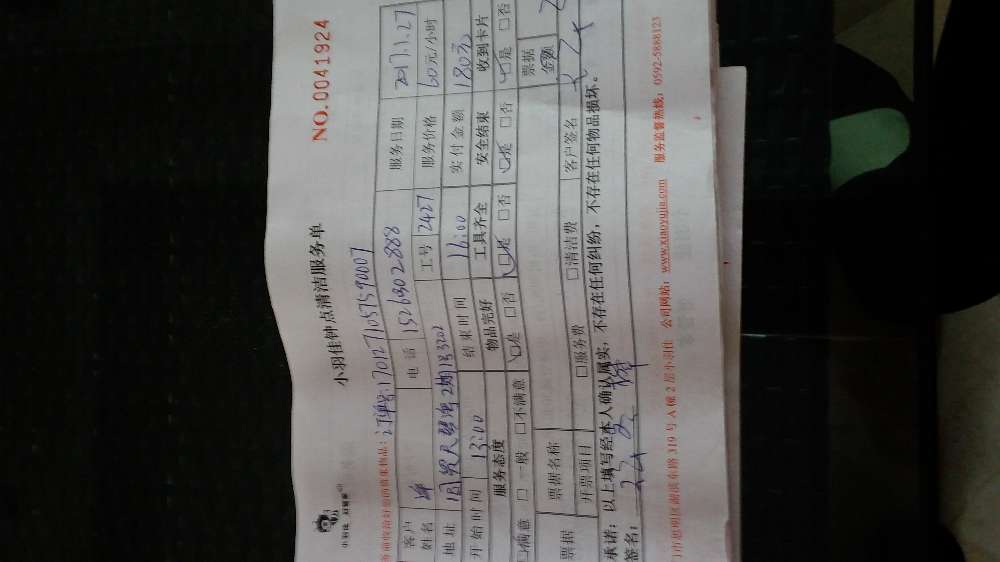 小羽佳 好管家
小羽佳钟点清洁服务单
NO.0041924
前收拾好您的贵重物品:
订单号:1701271057590007
客户姓名
电话 15269302888
服务日期 2017.1.27
地址
2期 3202
工号 2427
服务价格 60元/小时
开始时间 13:00
结束时间 16:00
实付金额 180元
服务态度 物品完好 工具齐全 安全结束 收到卡片
☑满意 □一般 □不满意 ☑是 □否 ☑是 □否 ☑是 □否 ☑是 □否
票据 票据名称 票据金额
开票项目 □服务费 □清洁费 客户签名
承诺:以上填写经本人确认属实,不存在任何纠纷,不存在任何物品损坏。
签名:
门市思明区湖滨东路 319 号 A 幢 2 层小羽佳 公司网站:www.xiaoyujia.com 服务监督热线:0592-5888123